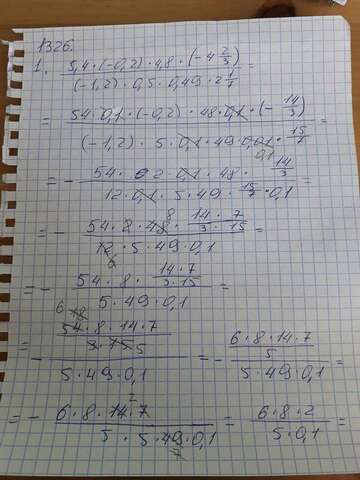 1326.
1. 5,4·(-0,2)·4,8·(-4 2/3) / (-1,2)·0,5·0,49·2 1/7 =
= 54·0,1·(-0,2)·48·0,1·(-14/3) / (-1,2)·5·0,1·49·0,01·15/7 =
0,1
= - 54·0,2·0,1·48·14/3 / 12·0,1·5·49·15/7·0,1 =
8
= - 54·2·48·14·7/3·15 / 12·5·49·0,1 =
= - 54·8·14·7/3·15 / 5·49·0,1 =
6 18
= - 54·8·14·7/3·15 5 / 5·49·0,1 = - 6·8·14·7/5 / 5·49·0,1 =
2
= - 6·8·14·7 / 5·5·49·0,1 = 6·8·2 / 5·0,1 =
7